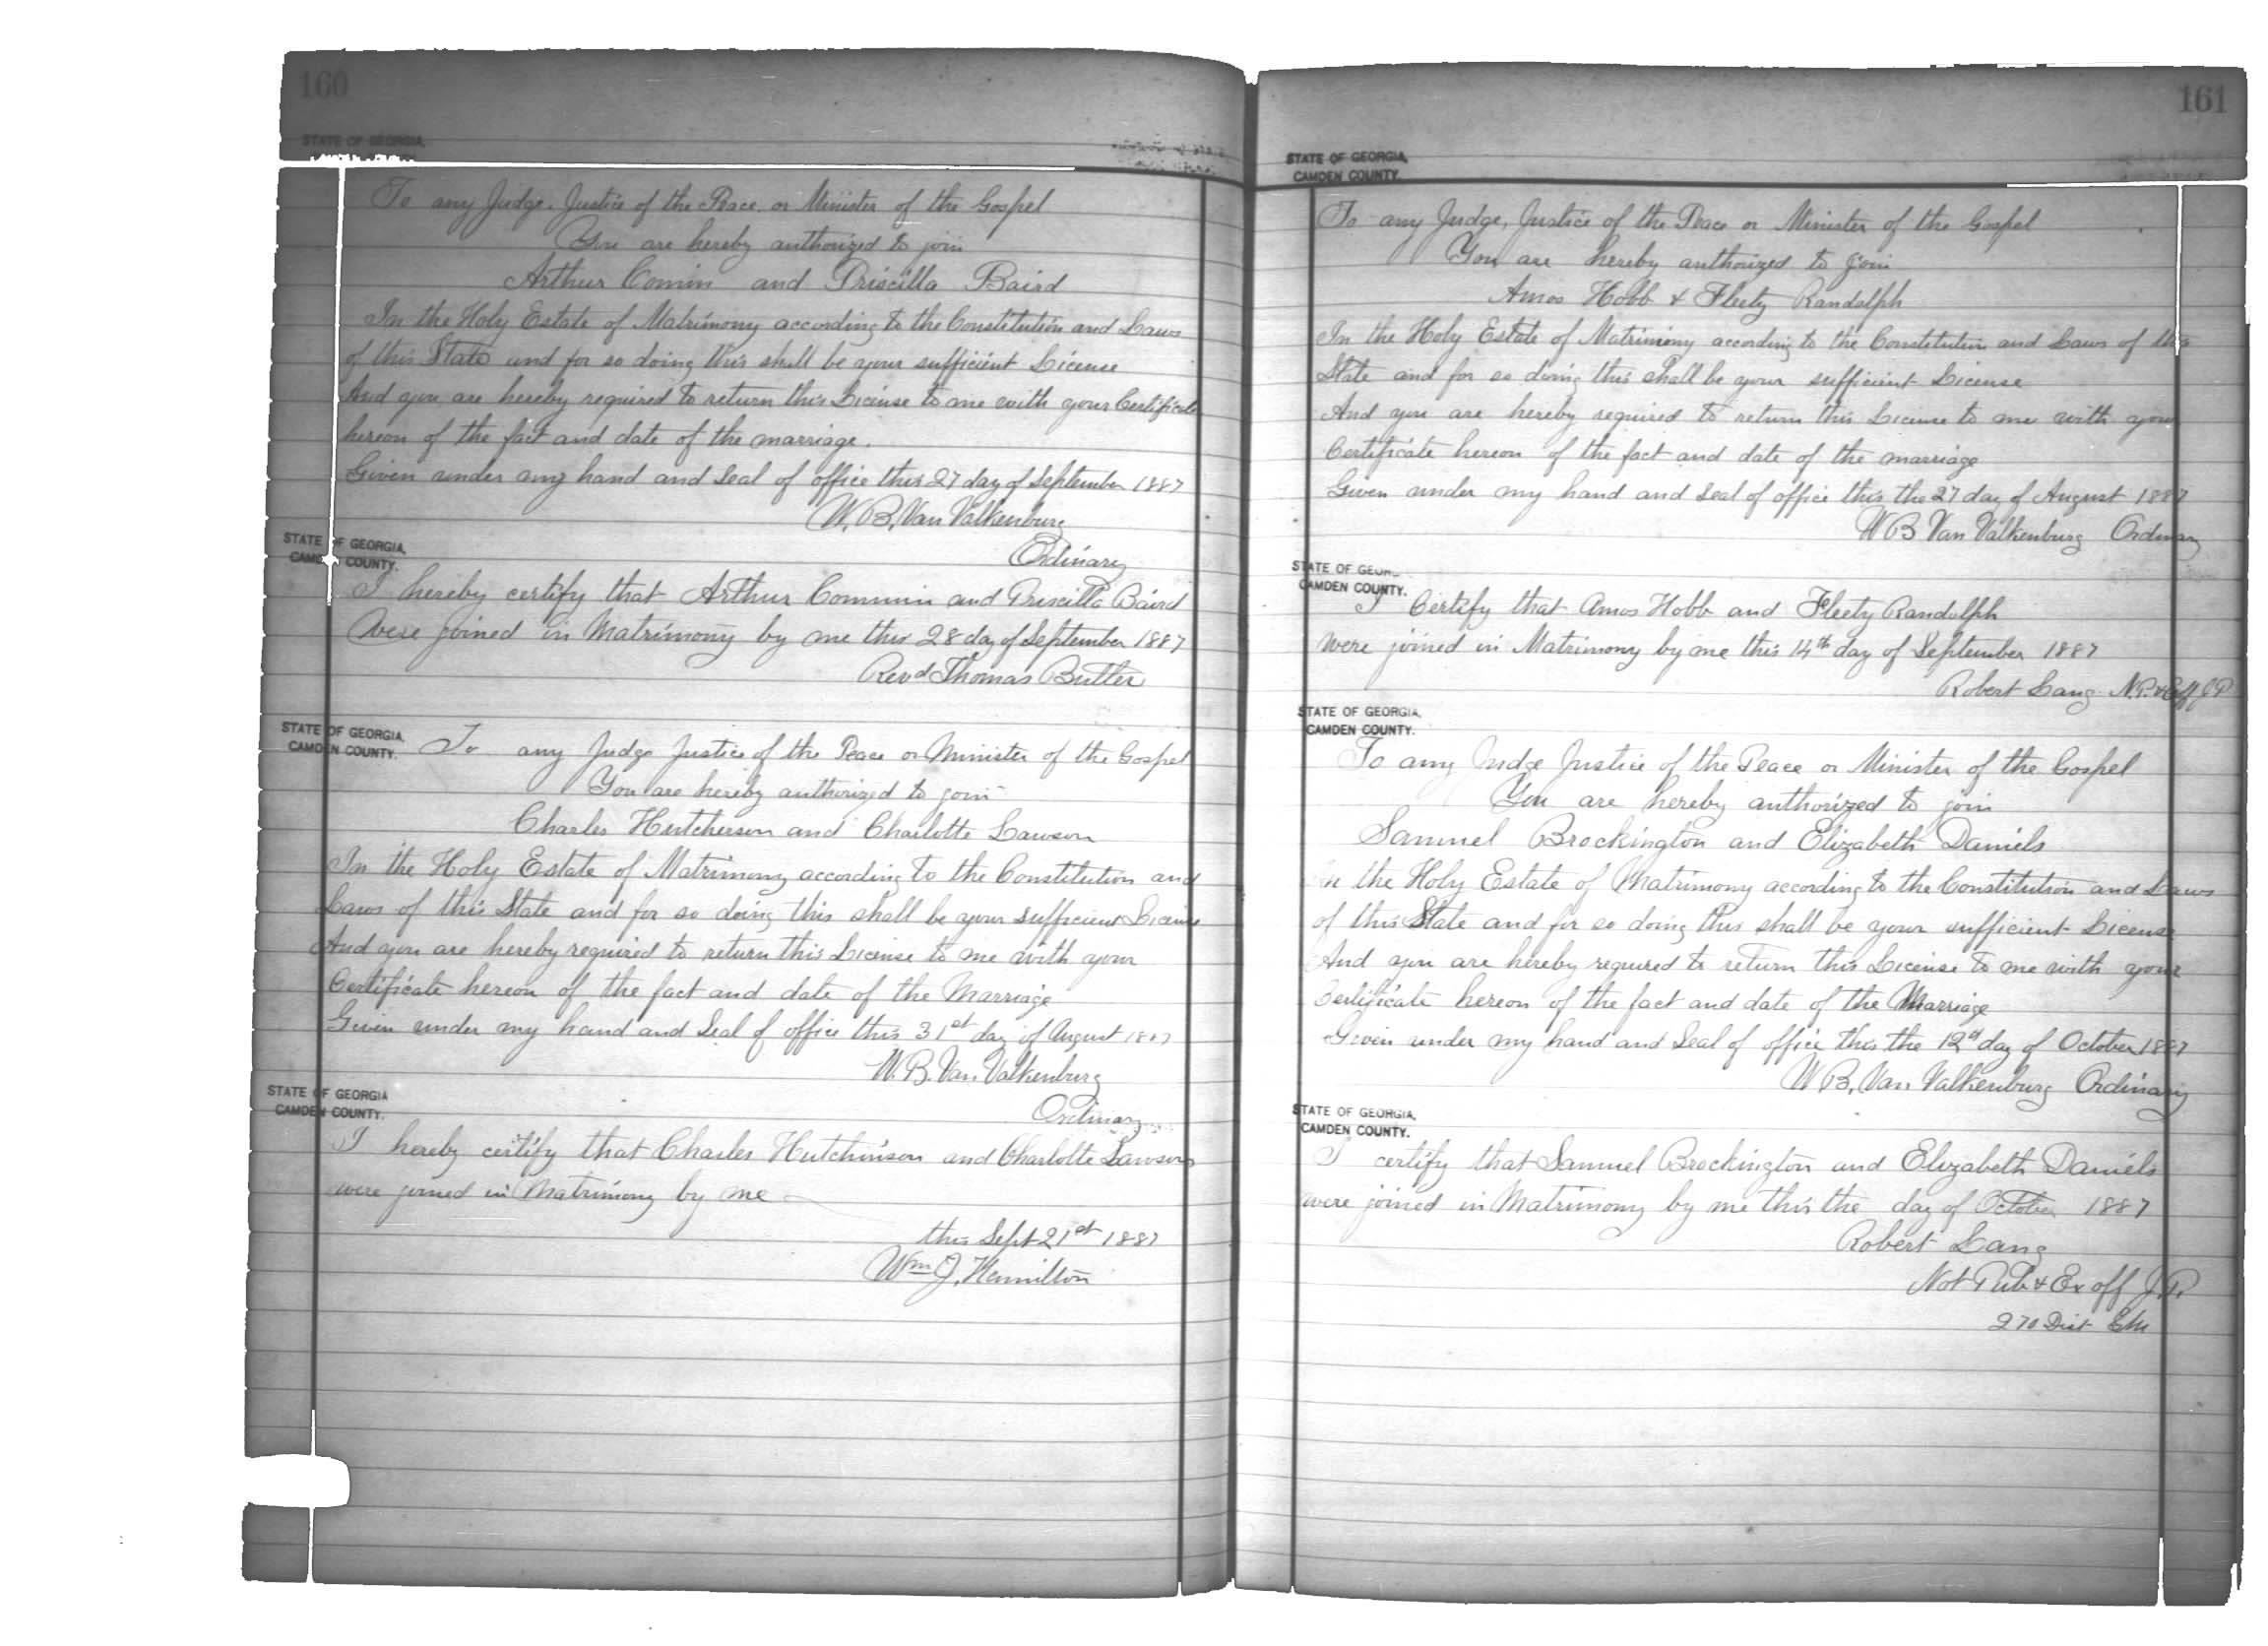 160
STATE OF GEORGIA,
To any Judge, Justice of the Peace, or Minister of the Gospel
You are hereby authorized to join
Arthur Comin and Priscilla Baird
In the Holy Estate of Matrimony according to the Constitution and Laws
of this State and for so doing this shall be your sufficient License
And you are hereby required to return this License to me with your Certificate
hereon of the fact and date of the marriage.
Given under my hand and Seal of office this 27 day of September 1887
W. B. Van Valkenburg
Ordinary
STATE OF GEORGIA,
CAMDEN COUNTY.
I hereby certify that Arthur Commin and Priscilla Baird
Were joined in Matrimony by me this 28 day of September 1887
Revd Thomas Butler
STATE OF GEORGIA,
CAMDEN COUNTY.
To any Judge Justice of the Peace or Minister of the Gospel
You are hereby authorized to join
Charles Hutcherson and Charlotte Lawson
In the Holy Estate of Matrimony according to the Constitution and
Laws of this State and for so doing this shall be your sufficient License
And you are hereby required to return this License to me with your
Certificate hereon of the fact and date of the Marriage
Given under my hand and Seal of office this 31st day of August 1887
W. B. Van Valkenburg
Ordinary
STATE OF GEORGIA
CAMDEN COUNTY.
I hereby certify that Charles Hutchinson and Charlotte Lawson
were joined in Matrimony by me
this Sept 21st 1887
Wm J. Hamilton
161
STATE OF GEORGIA,
CAMDEN COUNTY.
To any Judge, Justice of the Peace or Minister of the Gospel
You are hereby authorized to join
Amos Hobb & Fleety Randolph
In the Holy Estate of Matrimony according to the Constitution and Laws of this
State and for so doing this shall be your sufficient License
And you are hereby required to return this License to me with your
Certificate hereon of the fact and date of the marriage
Given under my hand and Seal of office this the 27 day of August 1887
W B Van Valkenburg Ordinary
STATE OF GEOR
CAMDEN COUNTY.
I Certify that Amos Hobb and Fleety Randolph
were joined in Matrimony by me this 14th day of September 1887
Robert Lang N.P. & Exoff J P
STATE OF GEORGIA,
CAMDEN COUNTY.
To any Judge Justice of the Peace or Minister of the Gospel
You are hereby authorized to join
Samuel Brockington and Elizabeth Daniels
In the Holy Estate of Matrimony according to the Constitution and Laws
of this State and for so doing this shall be your sufficient License
And you are hereby required to return this License to me with your
Certificate hereon of the fact and date of the Marriage
Given under my hand and Seal of office this the 12th day of October 1887
W B. Van Valkenburg Ordinary
STATE OF GEORGIA,
CAMDEN COUNTY.
I certify that Samuel Brockington and Elizabeth Daniels
were joined in Matrimony by me this the day of October 1887
Robert Lang
Not Pub & Ex off J.P.
270 Dist GM